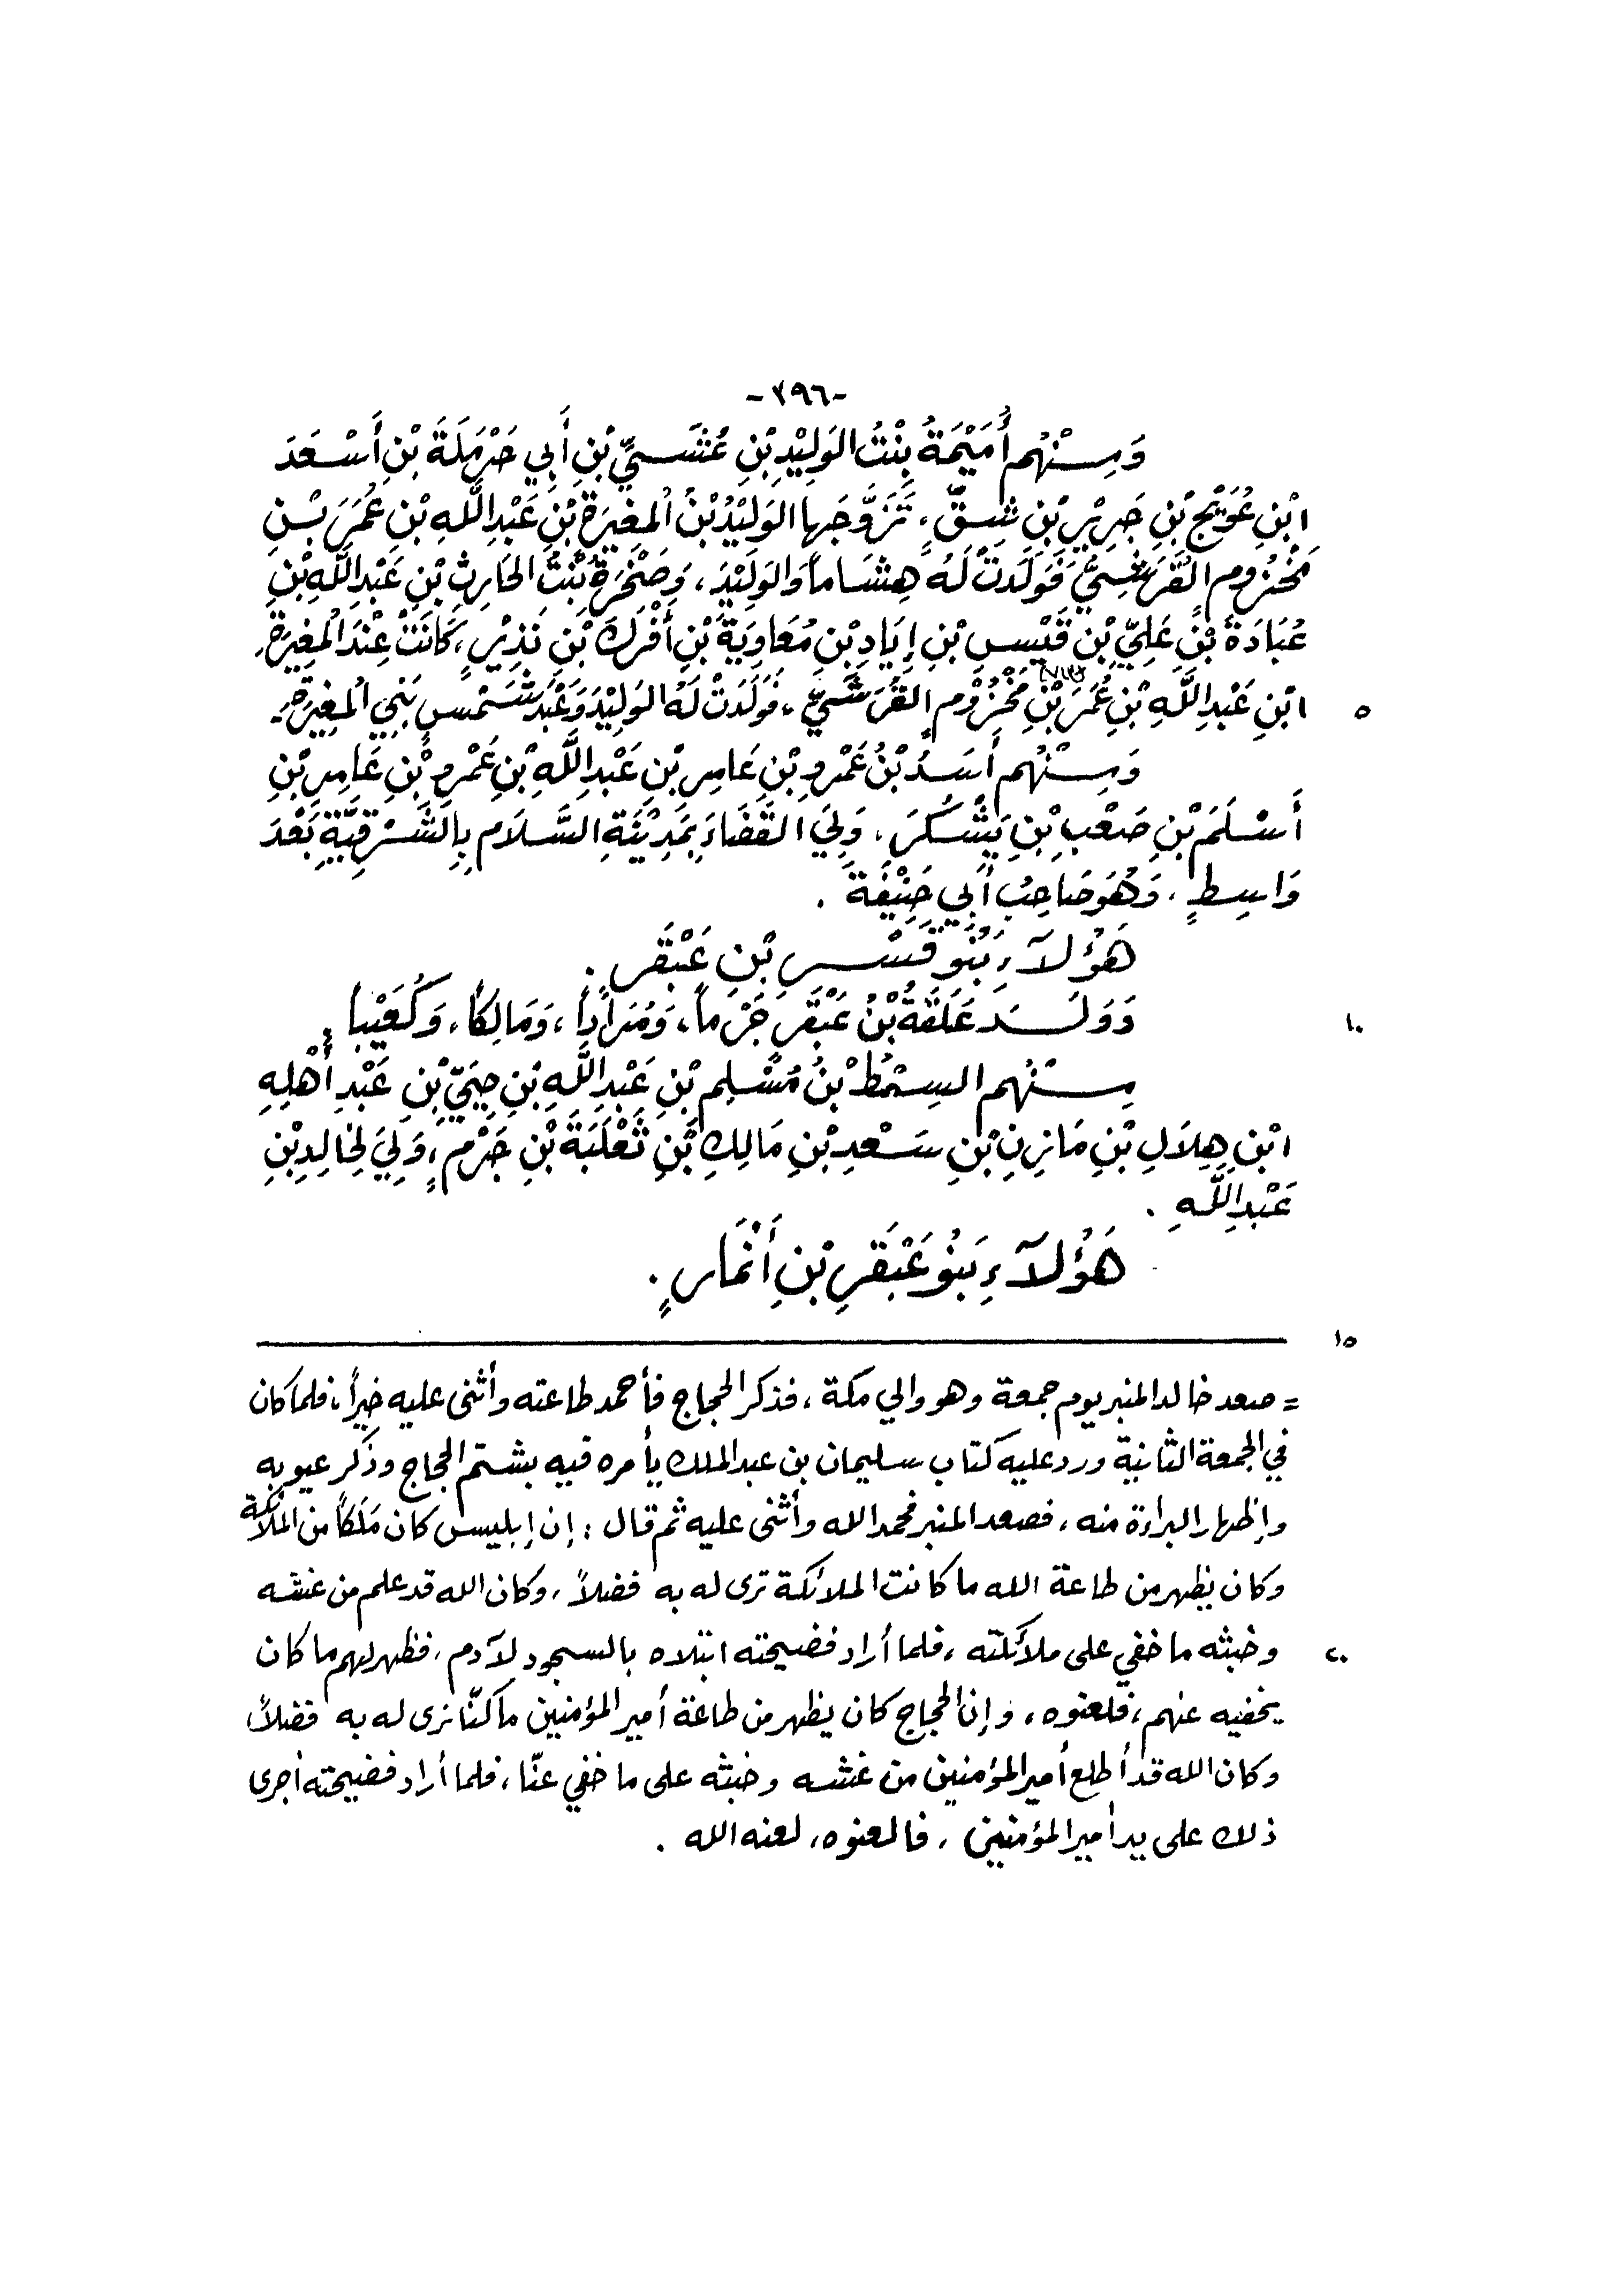 -٣٩٦-
وَمِنْهُم أُمَيْمَةُ بِنْتُ الوَلِيْدِ بْنِ عُشَيِّ بْنِ أَبِي حَرْمَلَةَ بْنِ أَسْعَدَ
ابْنِ عُوَيْجِ بْنِ جَرِيْرِ بْنِ شِقٍّ، تَزَوَّجَها الوَلِيْدُ بْنُ المُغِيرَةِ بْنِ عَبْدِ اللَّهِ بْنِ عُمَرَ بْنِ
مَخْزُومٍ القُرَشِيُّ فَوَلَدَتْ لَهُ هِشَاماً وَالوَلِيْدَ، وَصَخْرَةُ بْنْتُ الحَارِثِ بْنِ عَبْدِ اللَّهِ بْنِ
عُبَادَةَ بْنِ عَلِيِّ بْنِ قَيْسِ بْنِ إِيَادِ بْنِ مُعَاوِيَةَ بْنِ أَفْرَكَ بْنِ نَذِيْرٍ، كَانَتْ عِنْدَ المُغِيرَةِ
٥ ابْنِ عَبْدِ اللَّهِ بْنِ عُمَرَ بْنِ مَخْزُوْمٍ القُرَشِيِّ، فَوَلَدَتْ لَهُ الوَلِيْدَ وَعَبْدَ شَمْسٍ بَنِي المُغِيرَةِ.
وَمِنْهُم أَسَدُ بْنُ عَمْرِو بْنِ عَامِرِ بْنِ عَبْدِ اللَّهِ بْنِ عَمْرِو بْنِ عَامِرِ بْنِ
أَسْلَمَ بْنِ صَعْبِ بْنِ يَشْكَرَ، وَلِيَ القَضَاءَ بِمَدِيْنَةِ السَّلَامِ بِالشَّرْقِيَّةِ بَعْدَ
وَاسِطٍ، وَهُوَ صَاحِبُ أَبِي حَنِيْفَةَ.
هَؤُلَآءِ بَنُو قَسْرِ بْنِ عَبْقَرٍ.
١٠ وَوَلَدَ عَلَقَةُ بْنُ عَبْقَرَ جَرْماً، وَمُرَاداً، وَمَالِكاً، وَكُعَيْباً.
مِنْهُم السِمْطُ بْنُ مُسْلِمِ بْنِ عَبْدِ اللَّهِ بْنِ حِيَيِّ بْنِ عَبْدِ أَهْلِهِ
ابْنِ هِلَالِ بْنِ مَازِنِ بْنِ سَعْدِ بْنِ مَالِكِ بْنِ ثَعْلَبَةَ بْنِ جَرْمٍ، وَلِيَ لِخَالِدِ بْنِ
عَبْدِ اللَّهِ.
هَؤُلَآءِ بَنُو عَبْقَرِ بْنِ أَنْمَارٍ.
١٥
= صعد خالد المنبر يوم جمعة وهو والي مكة، فذكر الحجاج فأحمد طاعته وأثنى عليه خيراً، فلما كان
في الجمعة الثانية ورد عليه كتاب سليمان بن عبد الملك يأمره فيه بشتم الحجاج وذكر عيوبه
وإظهار البراءة منه، فصعد المنبر فحمد الله وأثنى عليه ثم قال: إن إبليس كان مَلَكاً من الملائكة
وكان يظهر من طاعة الله ما كانت الملائكة ترى له به فضلاً، وكان الله قد علم من غشه
٢٠ وخبثه ما خفي على ملائكته، فلما أراد فضيحته ابتلاه بالسجود لآدم، فظهر لهم ما كان
يخفيه عنهم، فلعنوه، وإن الحجاج كان يظهر من طاعة أمير المؤمنين ما كنّا نرى له به فضلاً
وكان الله قد أطلع أمير المؤمنين من غشه وخبثه على ما خفي عنّا، فلما أراد فضيحته أجرى
ذلك على يد أمير المؤمنين، فالعنوه، لعنه الله.